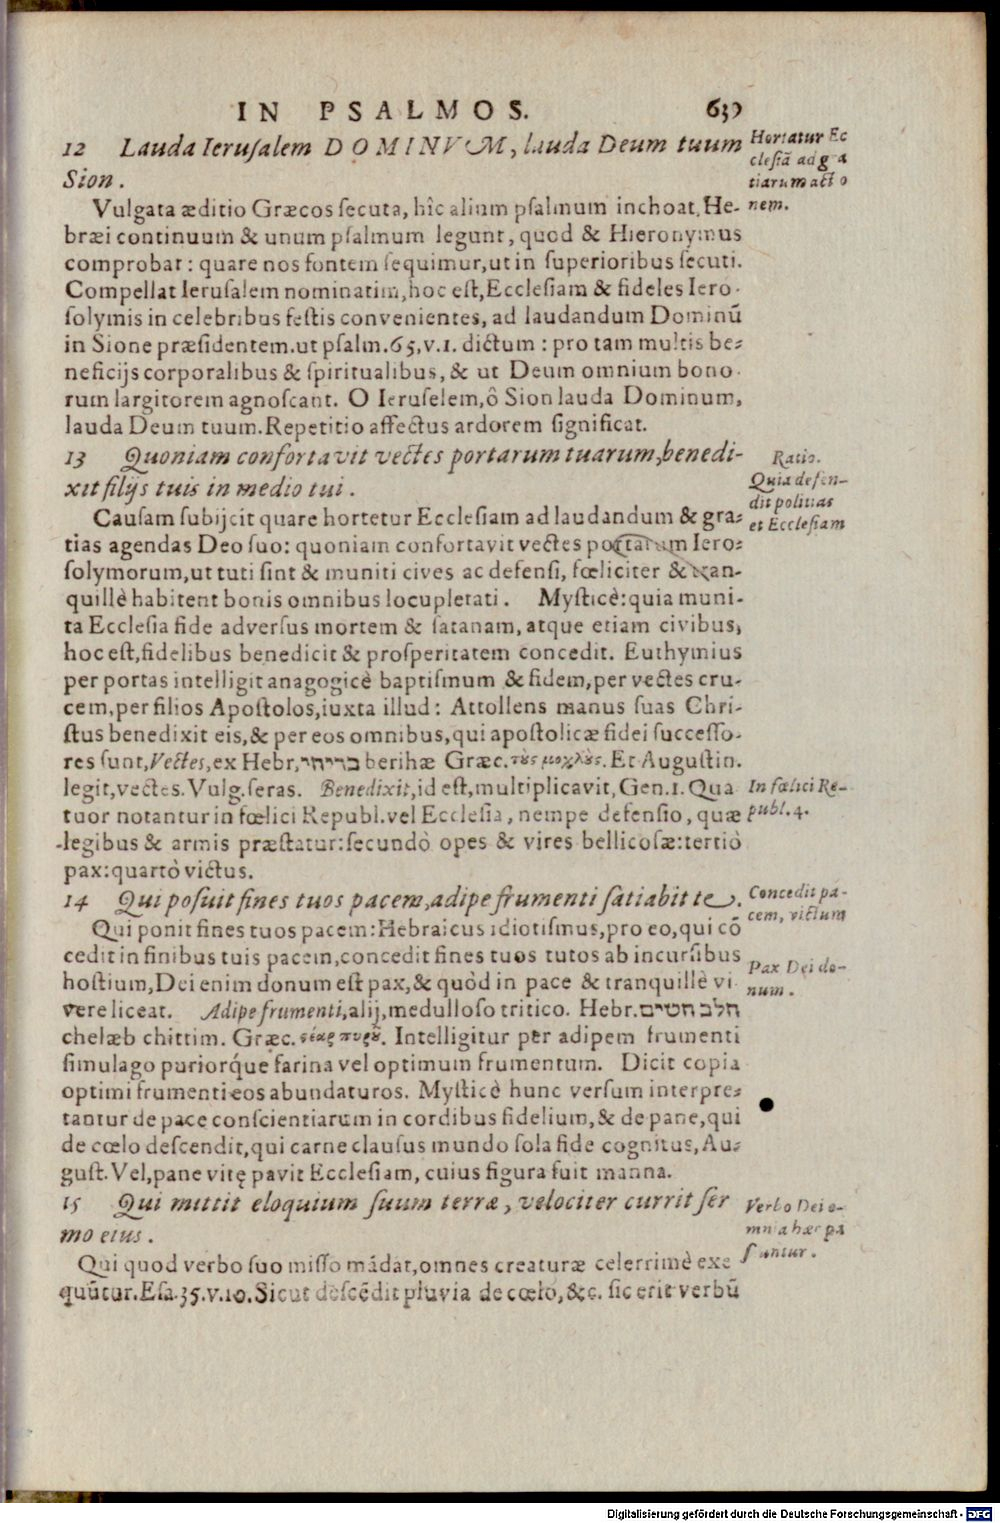 IN PSALMOS. 639
12 Lauda Ierusalem DOMINVM, lauda Deum tuum
Sion.
Hortatur Ec
clesiã ad gra
tiarum actio
nem.
Vulgata æditio Græcos secuta, hîc alium psalmum inchoat, He-
bræi continuum & unum psalmum legunt, quod & Hieronymus
comprobat: quare nos fontem sequimur, ut in superioribus secuti.
Compellat Ierusalem nominatim, hoc est, Ecclesiam & fideles Iero-
solymis in celebribus festis convenientes, ad laudandum Dominũ
in Sione præsidentem. ut psalm. 65, v. 1. dictum: pro tam multis be-
neficijs corporalibus & spiritualibus, & ut Deum omnium bono-
rum largitorem agnoscant. O Ieruselem, ô Sion lauda Dominum,
lauda Deum tuum. Repetitio affectus ardorem significat.
13 Quoniam confortavit vectes portarum tuarum, benedi-
xit filijs tuis in medio tui.
Ratio.
Quia defen-
dit politias
et Ecclesiam
Causam subijcit quare hortetur Ecclesiam ad laudandum & gra-
tias agendas Deo suo: quoniam confortavit vectes portarum Iero-
solymorum, ut tuti sint & muniti cives ac defensi, fœliciter & tran-
quillè habitent bonis omnibus locupletati. Mysticè: quia muni-
ta Ecclesia fide adversus mortem & satanam, atque etiam civibus,
hoc est, fidelibus benedicit & prosperitatem concedit. Euthymius
per portas intelligit anagogicè baptismum & fidem, per vectes cru-
cem, per filios Apostolos, iuxta illud: Attollens manus suas Chri-
stus benedixit eis, & per eos omnibus, qui apostolicæ fidei successo-
res sunt, Vectes, ex Hebr, בריחי berihæ Græc. τοὺς μοχλοὺς. Et Augustin.
legit, vectes. Vulg. seras. Benedixit, id est, multiplicavit, Gen. 1. Qua
tuor notantur in fœlici Republ. vel Ecclesia, nempe defensio, quæ
legibus & armis præstatur: secundò opes & vires bellicosæ: tertiò
pax: quartò victus.
In fœlici Re-
publ. 4.
14 Qui posuit fines tuos pacem, adipe frumenti satiabit te.
Concedit pa-
cem, victum
Qui ponit fines tuos pacem: Hebraicus idiotismus, pro eo, qui cõ
cedit in finibus tuis pacem, concedit fines tuos tutos ab incursibus
hostium, Dei enim donum est pax, & quòd in pace & tranquillè vi
vere liceat. Adipe frumenti, alij, medulloso tritico. Hebr. חלב חטים
chelæb chittim. Græc. στέας πυροῦ. Intelligitur per adipem frumenti
simulago puriorq́ue farina vel optimum frumentum. Dicit copia
optimi frumenti eos abundaturos. Mysticè hunc versum interpre-
tantur de pace conscientiarum in cordibus fidelium, & de pane, qui
de cœlo descendit, qui carne clausus mundo sola fide cognitus, Au-
gust. Vel, pane vitę pavit Ecclesiam, cuius figura fuit manna.
Pax Dei do-
num.
15 Qui mittit eloquium suum terræ, velociter currit ser
mo eius.
Verbo Dei o-
mnia hæc pa
rantur.
Qui quod verbo suo misso mãdat, omnes creaturæ celerrimè exe
quũtur. Esa. 35. v. 10. Sicut descẽdit pluvia de cœlo, &c. sic erit verbũ
Digitalisierung gefördert durch die Deutsche Forschungsgemeinschaft - DFG